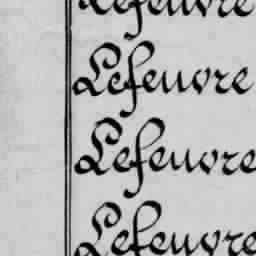 Lefeuvre
Lefeuvre
Lefeuvre
Lefeuvre